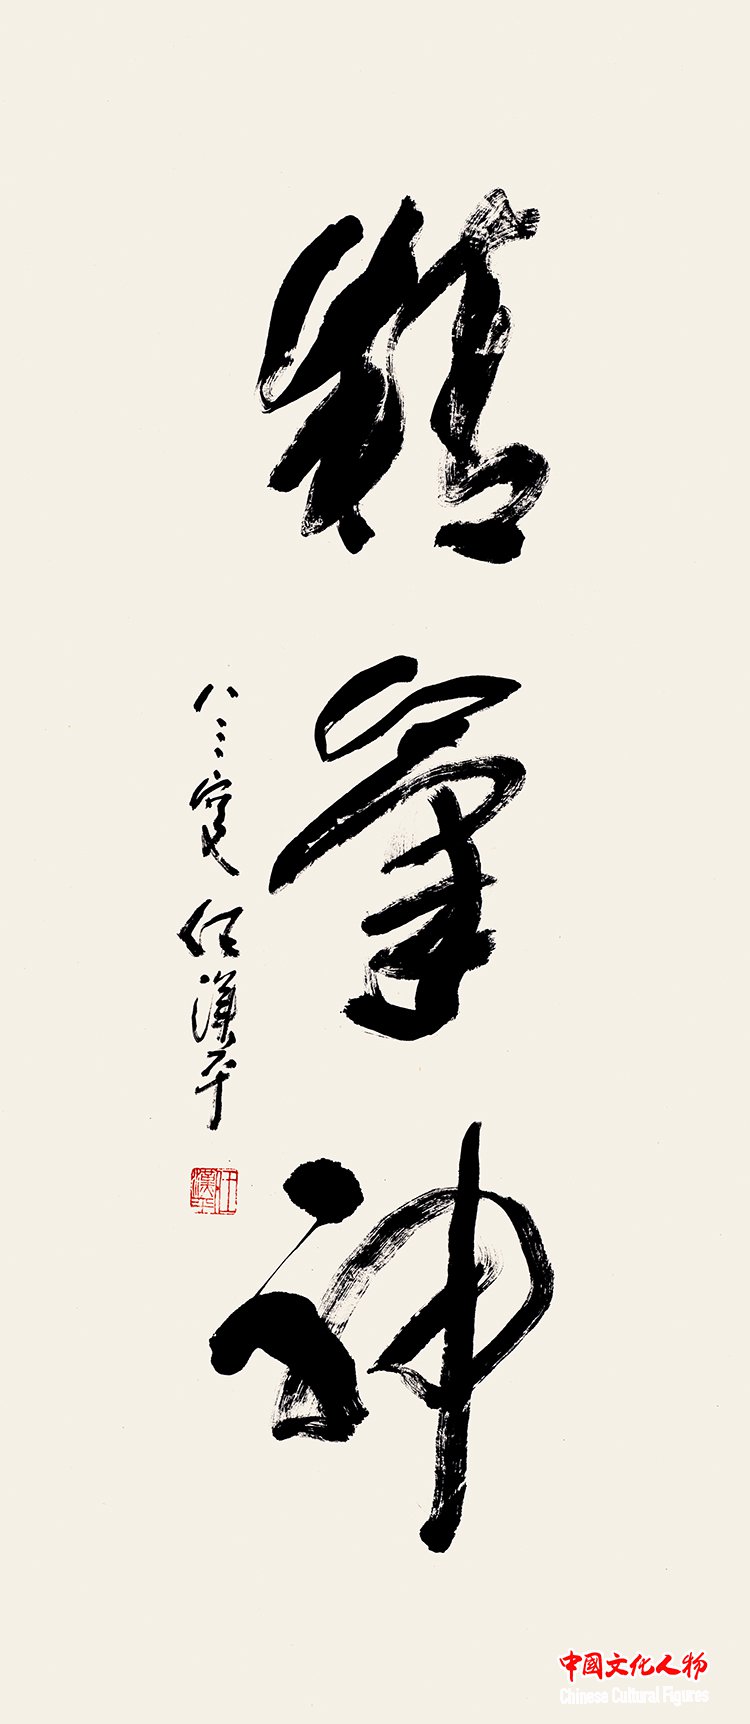 精氣神
八三叟 任漢平
任漢平
中國文化人物
Chinese Cultural Figures